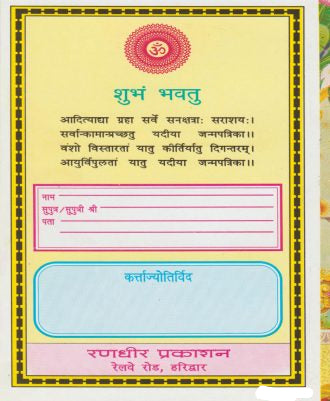 ॐ
शुभं भवतु
आदित्याद्या ग्रहा सर्वे सनक्षत्राः सराशयः।
सर्वान्कामान्प्रच्छतु यदीया जन्मपत्रिका।।
वंशो विस्तारतां यातु कीर्तिर्यातु दिगन्तरम्।
आयुर्विपुलतां यातु यदीया जन्मपत्रिका।।
नाम
सुपुत्र/सुपुत्री श्री
पता
कर्त्ताज्योतिर्विद
रणधीर प्रकाशन
रेलवे रोड, हरिद्वार